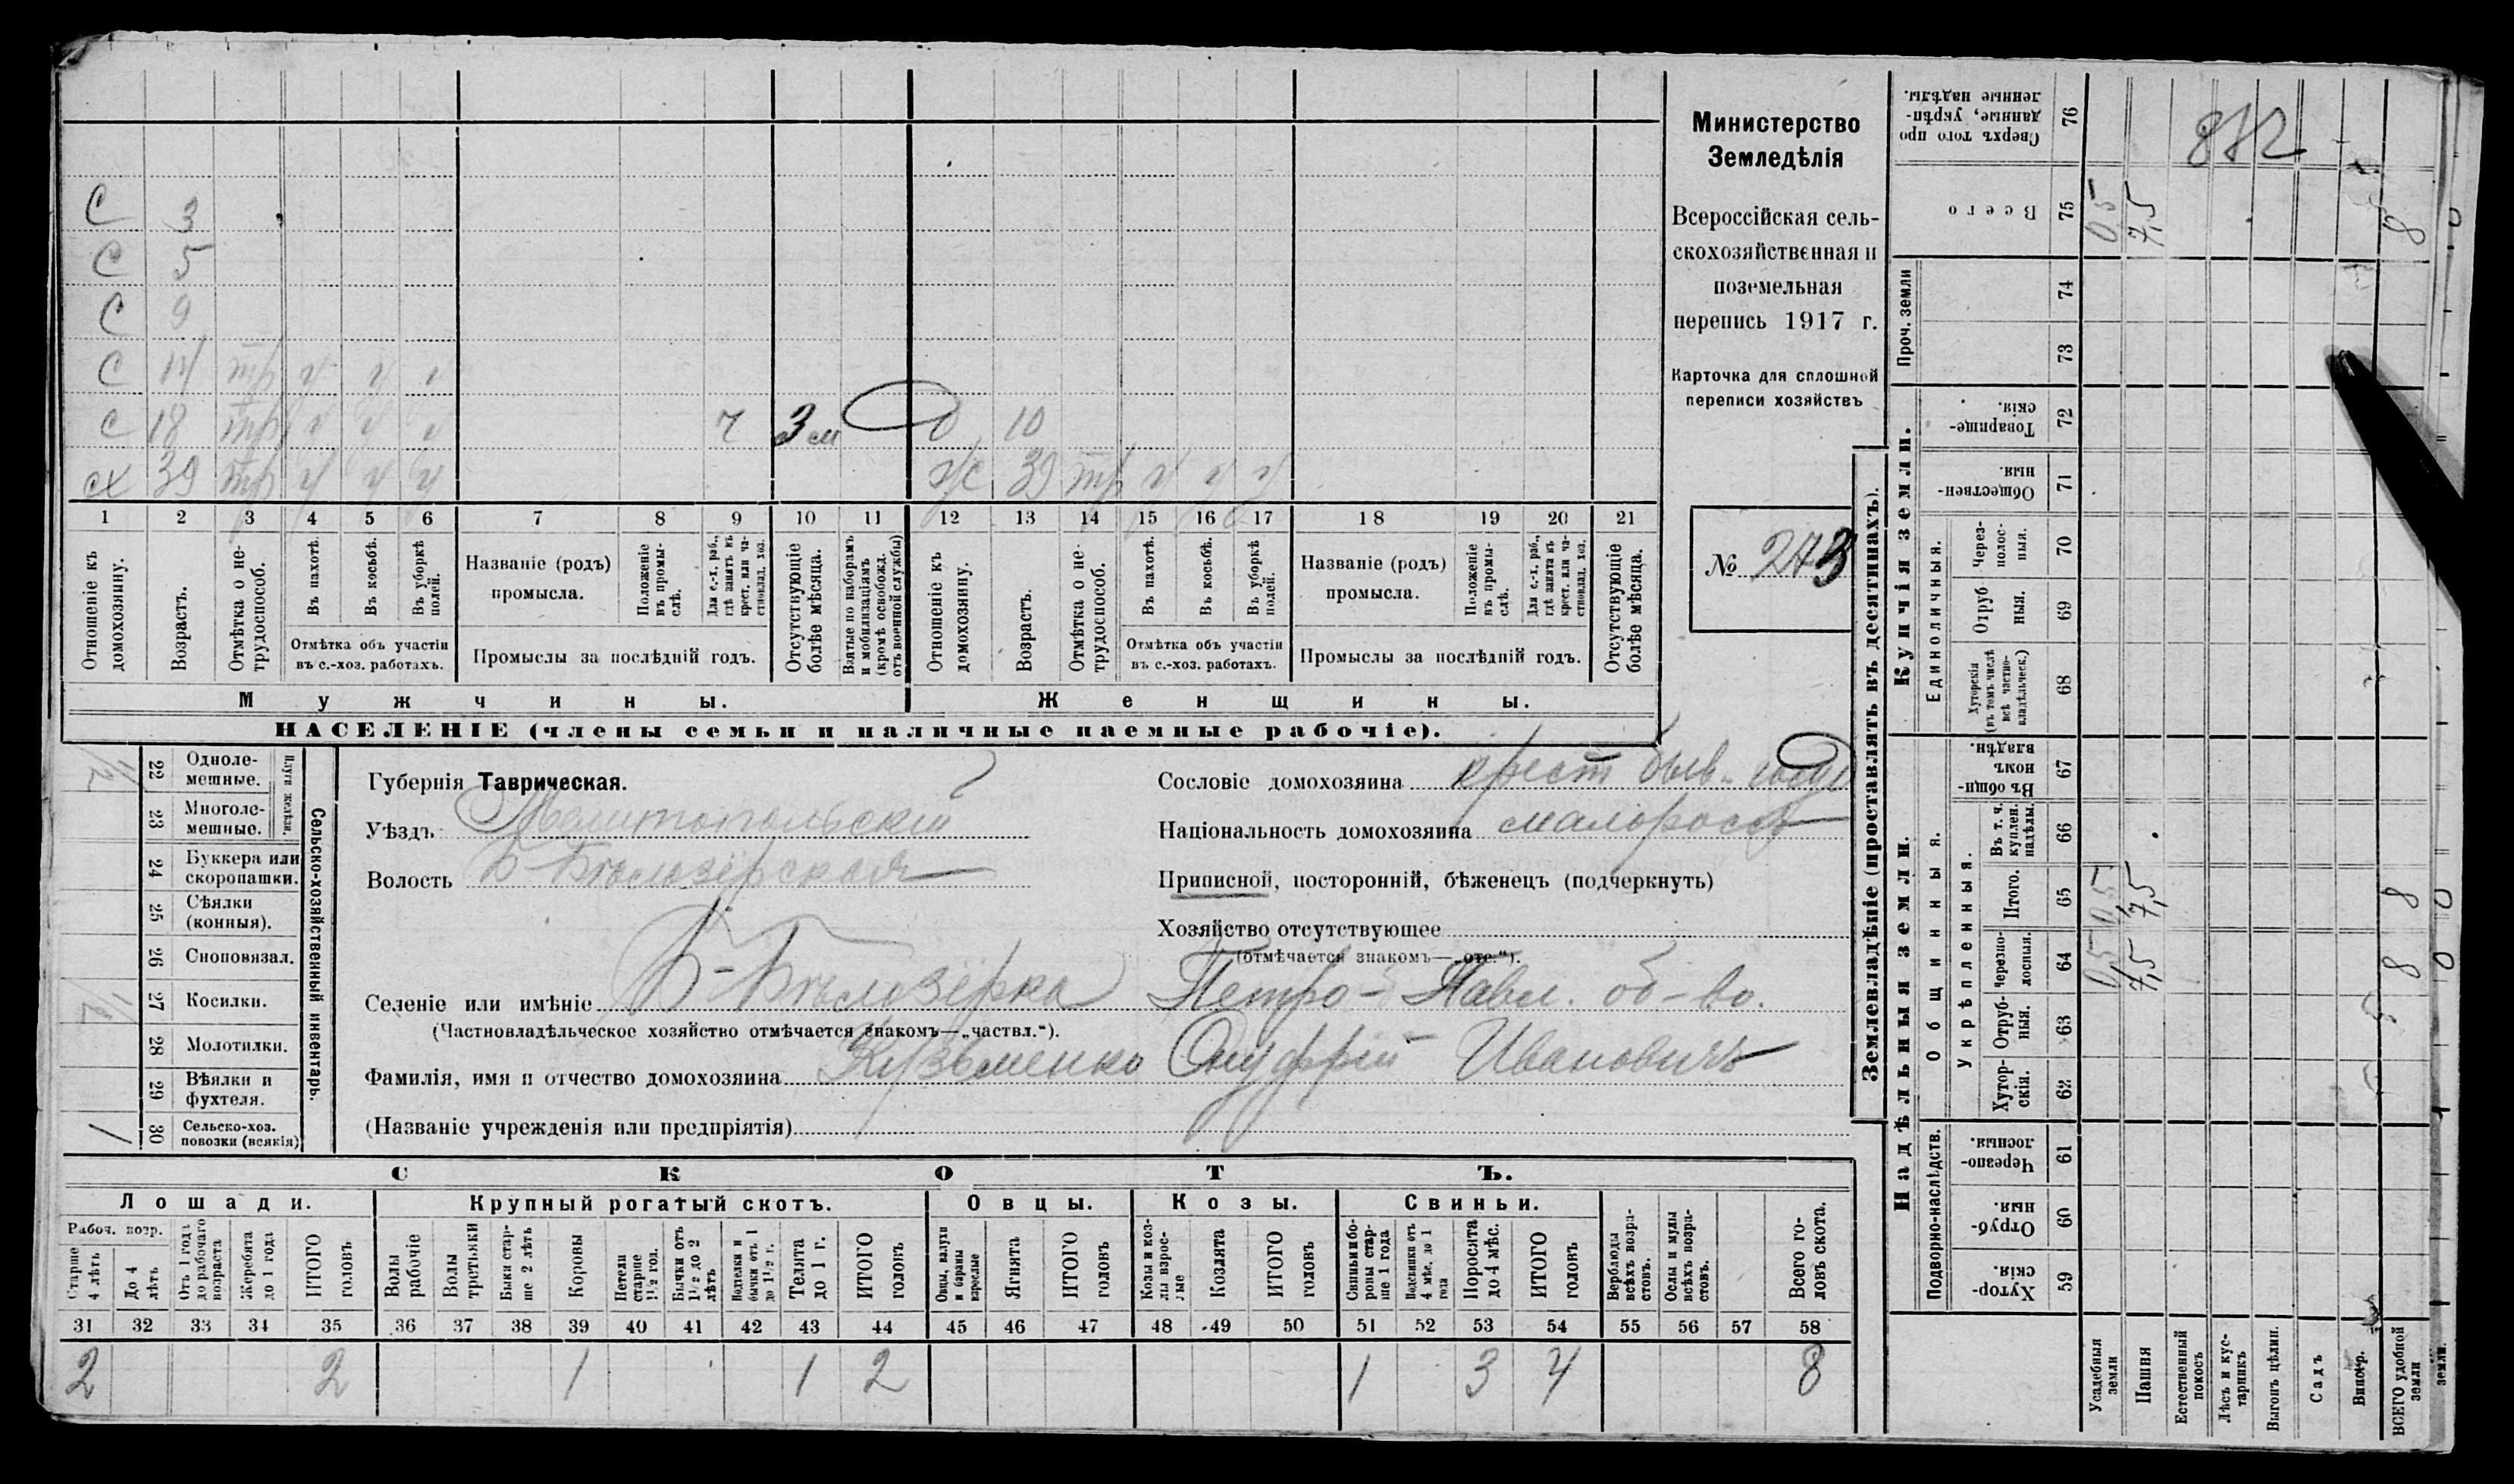 Министерство
Земледѣлія
Всероссійская сель-
скохозяйственная и
поземельная
перепись 1917 г.
Карточка для сплошной
переписи хозяйствъ
№ 273
С 3
С 5
С 9
С 14 тр ч ч ч
С 18 тр ч ч ч ч 3 м д 10
сх 39 тр ч ч ч ж 39 тр ч ч ч
1 2 3 4 5 6 7 8 9 10 11 12 13 14 15 16 17 18 19 20 21
Отношеніе къ домохозяину.
Возрастъ.
Отмѣтка о не-трудоспособ.
Въ пахотѣ.
Въ косьбѣ.
Въ уборкѣ полей.
Отмѣтка объ участіи въ с.-хоз. работахъ.
Названіе (родъ) промысла.
Положеніе въ промы-слѣ.
Для с.-х. раб., гдѣ занятъ въ крест. или ча-стновлад. хоз.
Промыслы за послѣдній годъ.
Отсутствующіе болѣе мѣсяца.
Взятые по наборамъ и мобилизаціямъ (кромѣ освобожд. отъ военной службы)
Отношеніе къ домохозяину.
Возрастъ.
Отмѣтка о не-трудоспособ.
Въ пахотѣ.
Въ косьбѣ.
Въ уборкѣ полей.
Отмѣтка объ участіи въ с.-хоз. работахъ.
Названіе (родъ) промысла.
Положеніе въ промы-слѣ.
Для с.-х. раб., гдѣ занята въ крест. или ча-стновлад. хоз.
Промыслы за послѣдній годъ.
Отсутствующіе болѣе мѣсяца.
Мужчины. Женщины.
НАСЕЛЕНІЕ (члены семьи и наличные наемные рабочіе).
Сельско-хозяйственный инвентарь.
Плуги желѣзн.
22 Одноле-мешные. 1/2
23 Многоле-мешные.
24 Буккера или скоропашки.
25 Сѣялки (конныя).
26 Сноповязал.
27 Косилки. 1/2
28 Молотилки.
29 Вѣялки и фухтеля.
30 Сельско-хоз. повозки (всякія) 1
Губернія Таврическая.
Уѣздъ Мелитопольскій
Волость Б-Бѣлозерская
Сословіе домохозяина крест быв. госуд
Національность домохозяина малороссъ
Приписной, посторонній, бѣженецъ (подчеркнуть)
Хозяйство отсутствующее
(отмѣчается знакомъ—„отс.“).
Селеніе или имѣніе Б-Бѣлозерка Петро-Павл. об-во.
(Частновладѣльческое хозяйство отмѣчается знакомъ—„частвл.“).
Фамилія, имя и отчество домохозяина Кузьменко Онуфрій Ивановичъ
(Названіе учрежденія или предпріятія)
СКОТЪ.
Лошади. Крупный рогатый скотъ. Овцы. Козы. Свиньи.
Рабоч. возр.
Старше 4 лѣтъ
До 4 лѣтъ
Отъ 1 года до рабочаго возраста
Жеребята до 1 года
ИТОГО головъ
Волы рабочіе
Волы третьяки
Быки стар-ше 2 лѣтъ
Коровы
Нетели старше 1½ год.
Бычки отъ 1½ до 2 лѣтъ
Подтелки и бычки отъ 1 до 1½ г.
Телята до 1 г.
ИТОГО головъ
Овцы, валухи и бараны взрослые
Ягнята
ИТОГО головъ
Козы и коз-лы взрос-лые
Козлята
ИТОГО головъ
Свиньи и бо-ровы стар-ше 1 года
Подсвинки отъ 4 мѣс. до 1 года
Поросята до 4 мѣс.
ИТОГО головъ
Верблюды всѣхъ возра-стовъ.
Ослы и мулы всѣхъ возра-стовъ.
Всего го-ловъ скота.
31 32 33 34 35 36 37 38 39 40 41 42 43 44 45 46 47 48 49 50 51 52 53 54 55 56 57 58
2 2 1 1 2 1 3 4 8
Землевладѣніе (проставлять въ десятинахъ).
Надѣльныя земли.
Подворно-наслѣдств.
Хутор-скія. 59
Отруб-ныя. 60
Черезпо-лосныя. 61
Общинныя.
Укрѣпленныя.
Хутор-скія. 62
Отруб-ныя. 63
Черезпо-лосныя. 64 0,5 7,5 8 0
Итого. 65 0,5 7,5 8 0
Въ т. ч. куплен. надѣлы. 66
Въ общи-номъ владѣн. 67
Купчія земли.
Единоличныя.
Хуторскія (въ томъ числѣ всѣ частно-владѣльческ.) 68
Отруб ныя. 69
Через-полос-ныя. 70
Обществен-ныя. 71
Товарище-скія. 72
Проч. земли
73
74
Всего 75 0,5 7,5 8 0
Сверхъ того про данные, укрѣп-ленные надѣлы. 76
Усадебныя земли
Пашня
Естественный покосъ
Лѣсъ и кус-тарникъ
Выгонъ цѣлин.
Садъ
Виногр.
ВСЕГО удобной земли
земли.